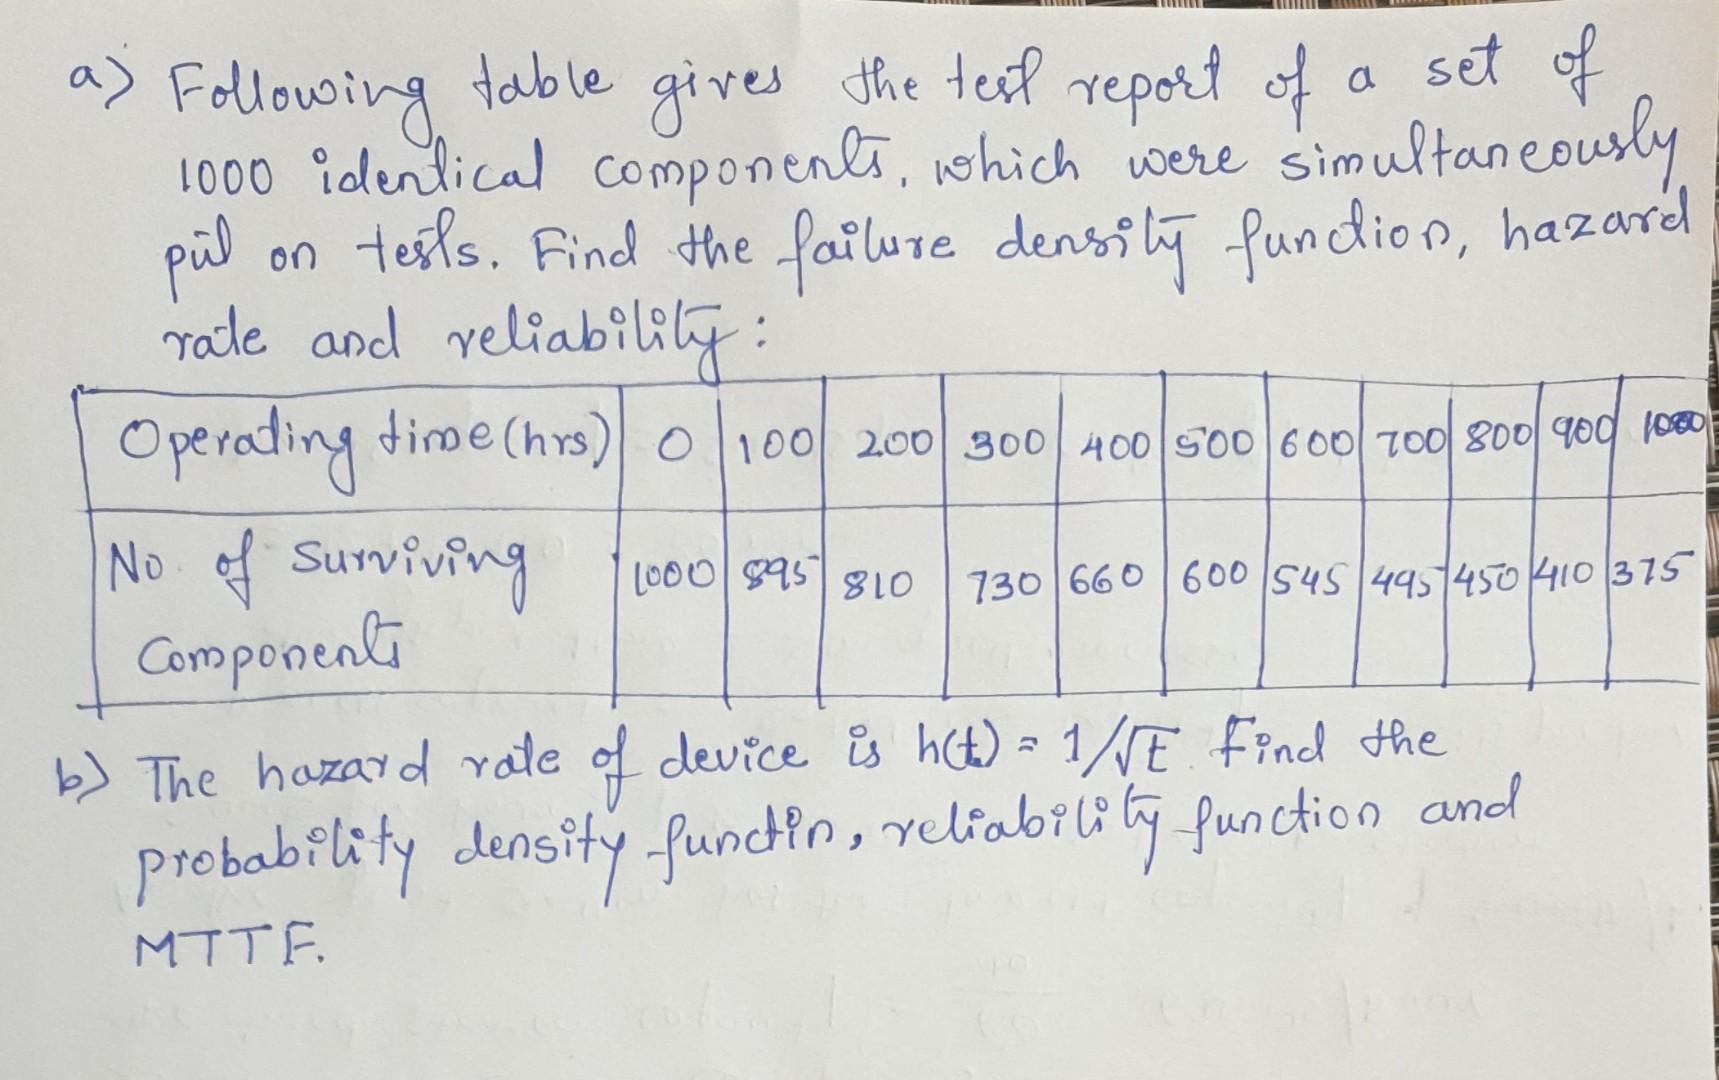 a) Following table gives the test report of a set of
1000 identical components, which were simultaneously
put on tests. Find the failure density function, hazard
rate and reliability :
Operating time (hrs) 0 100 200 300 400 500 600 700 800 900 1000
No. of Surviving 1000 895 810 730 660 600 545 495 450 410 375
Components
b) The hazard rate of device is h(t) = 1/√t. Find the
probability density functin, reliability function and
MTTF.